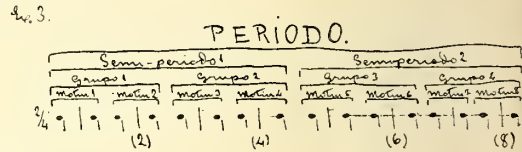 Es. 3.
PERIODO.
Semi-periodo 1 Semiperiodo 2
Grupo 1 Grupo 2 Grupo 3 Grupo 4
Motivo 1 Motivo 2 Motivo 3 Motivo 4 Motivo 5 Motivo 6 Motivo 7 Motivo 8
2/4
(2) (4) (6) (8)